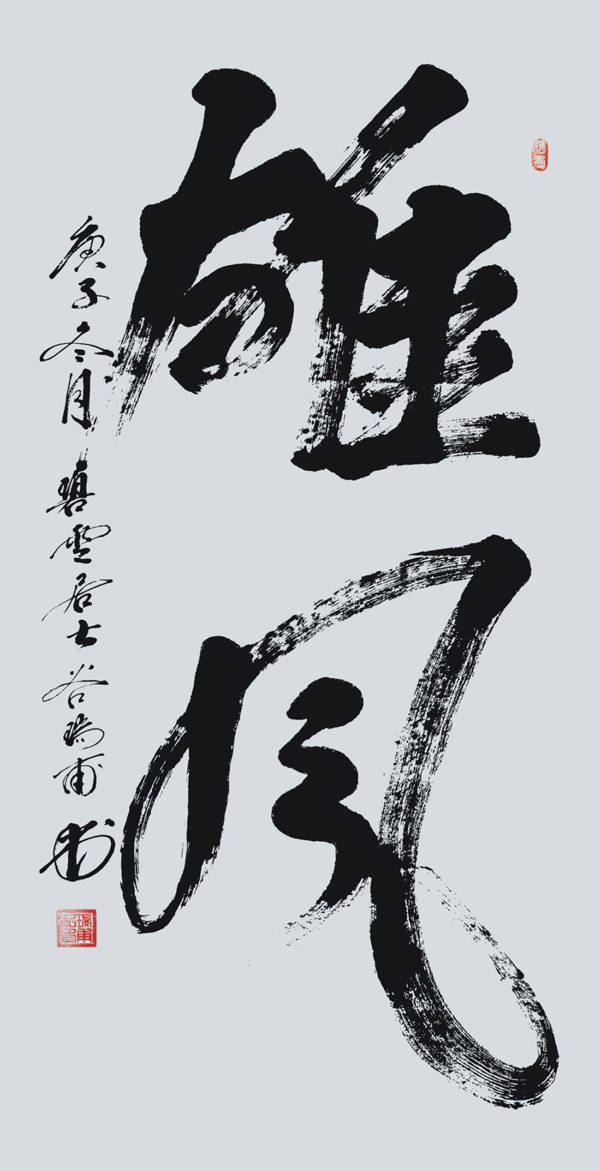 雄风
庚子冬月碧云居士谷瑞甫书